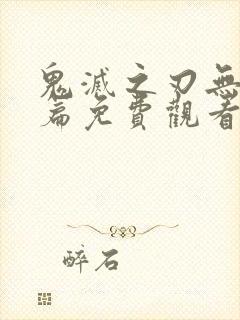 鬼滅之刃無
篇免費觀看
醉石